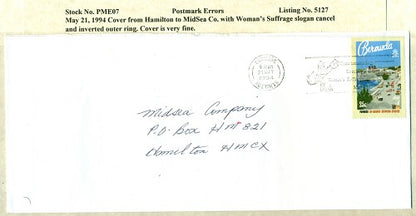 Stock No. PME07 Postmark Errors Listing No. 5127
May 21, 1994 Cover from Hamilton to MidSea Co. with Woman's Suffrage slogan cancel
and inverted outer ring. Cover is very fine.
Bermuda
Midsea Company
P.O. Box HM 321
Hamilton HMCX